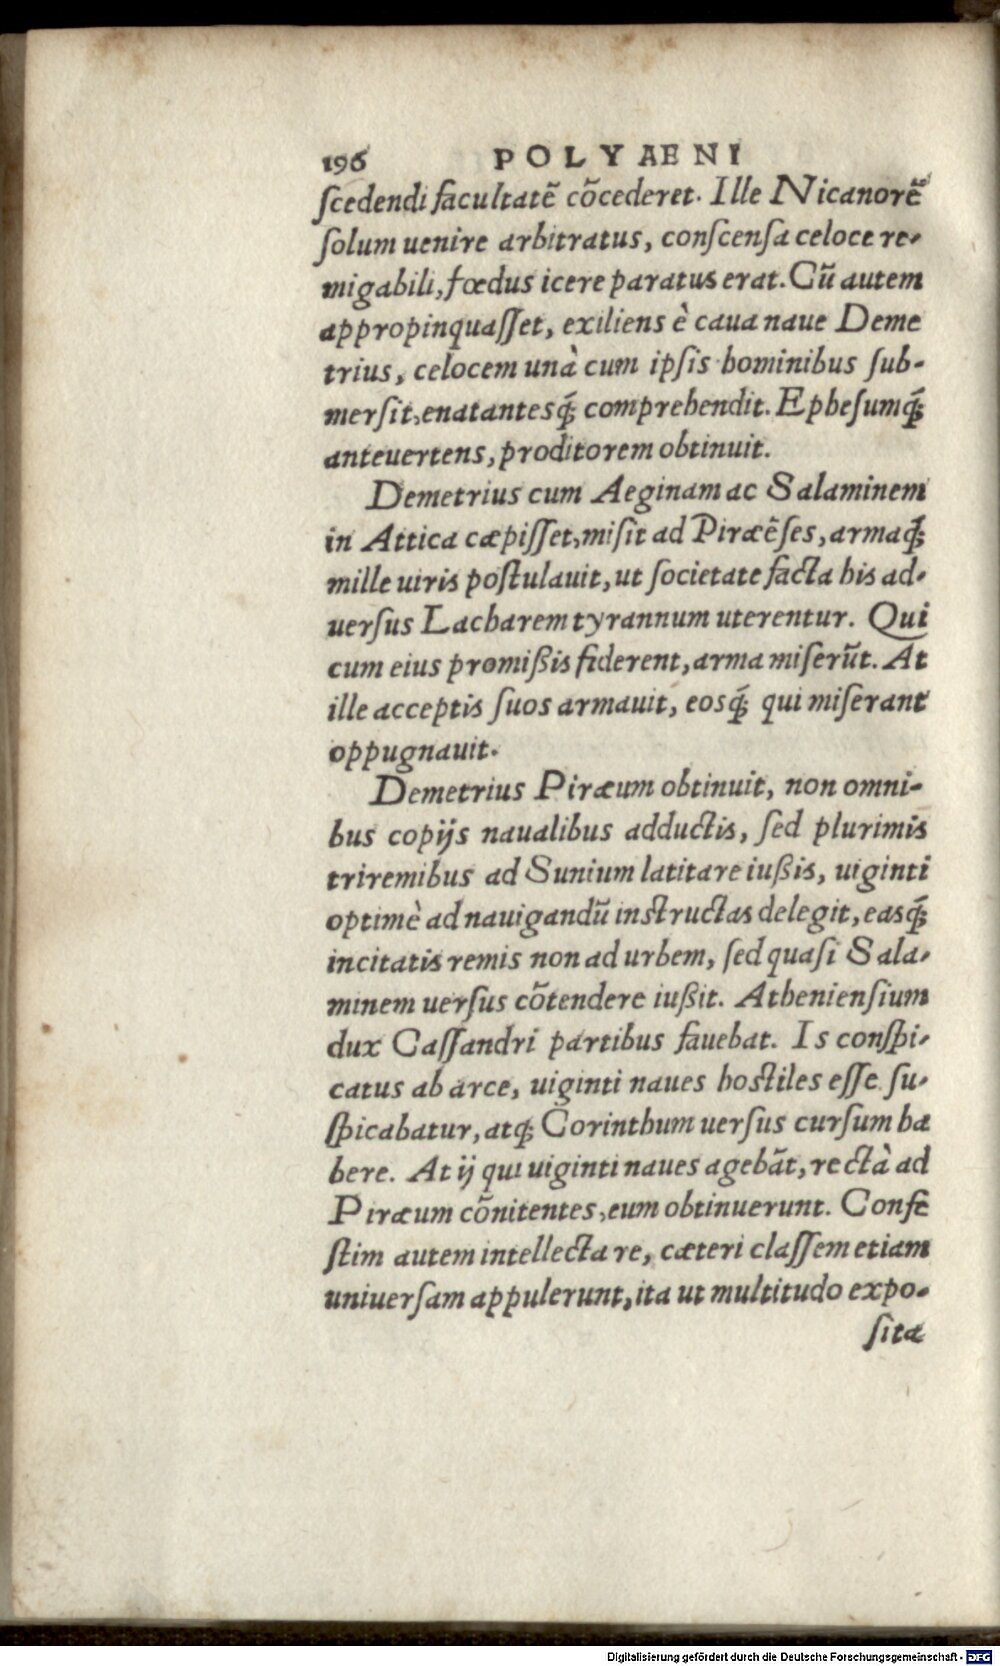 196 POLYAENI
ſcedendi facultatē cōcederet. Ille Nicanorē
ſolum uenire arbitratus, conſcenſa celoce re-
migabili, fœdus icere paratus erat. Cū autem
appropinquaſſet, exiliens è caua naue Deme
trius, celocem unà cum ipſis hominibus ſub-
merſit, enatantesq́; comprehendit. Epheſumq́;
anteuertens, proditorem obtinuit.
Demetrius cum Aeginam ac Salaminem
in Attica cæpiſſet, miſit ad Piræēſes, armaq́;
mille uiris poſtulauit, ut ſocietate facta his ad-
uerſus Lacharem tyrannum uterentur. Qui
cum eius promißis fiderent, arma miſerūt. At
ille acceptis ſuos armauit, eosq́; qui miſerant
oppugnauit.
Demetrius Piræum obtinuit, non omni-
bus copijs naualibus adductis, ſed plurimis
triremibus ad Sunium latitare iußis, uiginti
optimè ad nauigandū inſtructas delegit, easq́;
incitatis remis non ad urbem, ſed quaſi Sala-
minem uerſus cōtendere iußit. Athenienſium
dux Caſſandri partibus fauebat. Is conſpi-
catus ab arce, uiginti naues hoſtiles eſſe ſu-
ſpicabatur, atq; Corinthum uerſus curſum ha
bere. At ij qui uiginti naues agebāt, rectà ad
Piræum cōnitentes, eum obtinuerunt. Confe
ſtim autem intellecta re, cæteri claſſem etiam
uniuerſam appulerunt, ita ut multitudo expo-
ſitæ
Digitalisierung gefördert durch die Deutsche Forschungsgemeinschaft - DFG